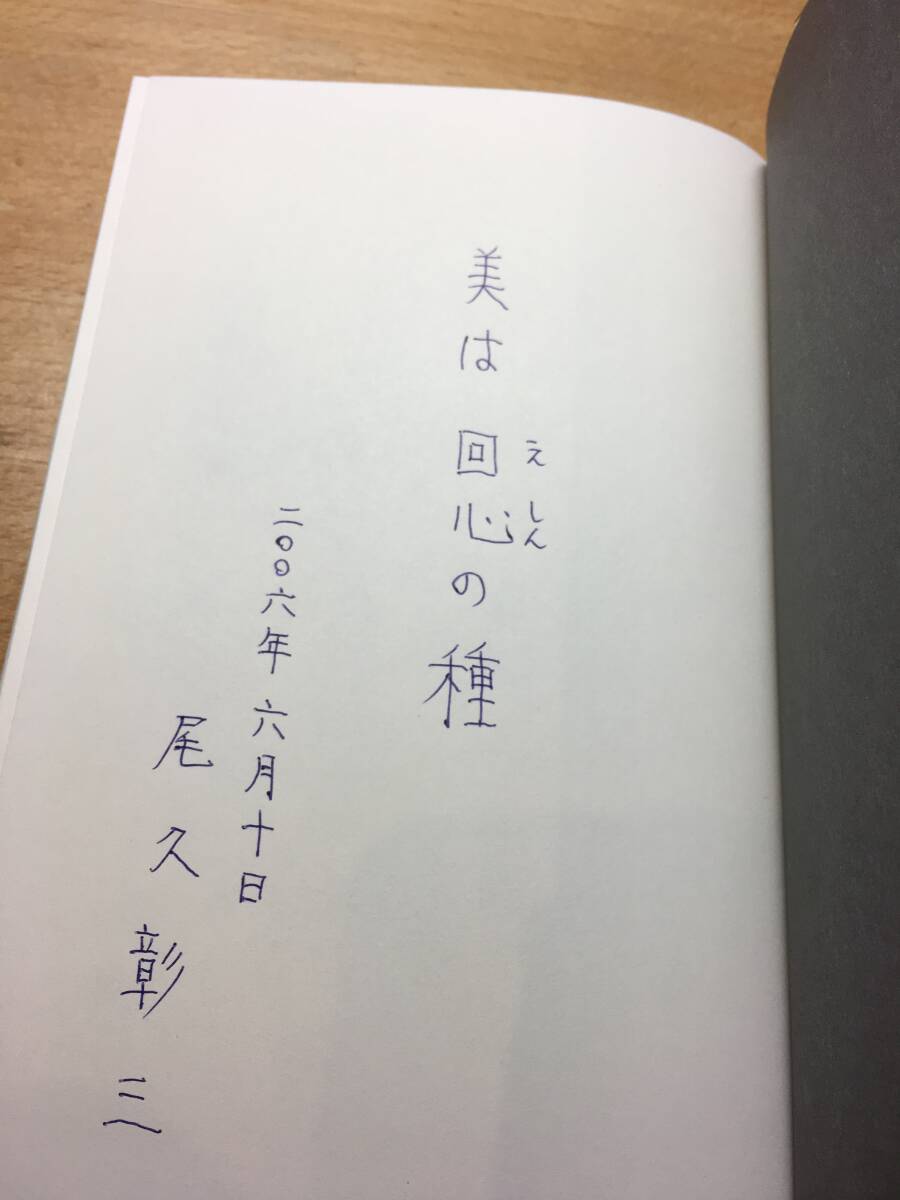 美は 回心の種
えしん
二〇〇六年 六月十日
尾久彰三